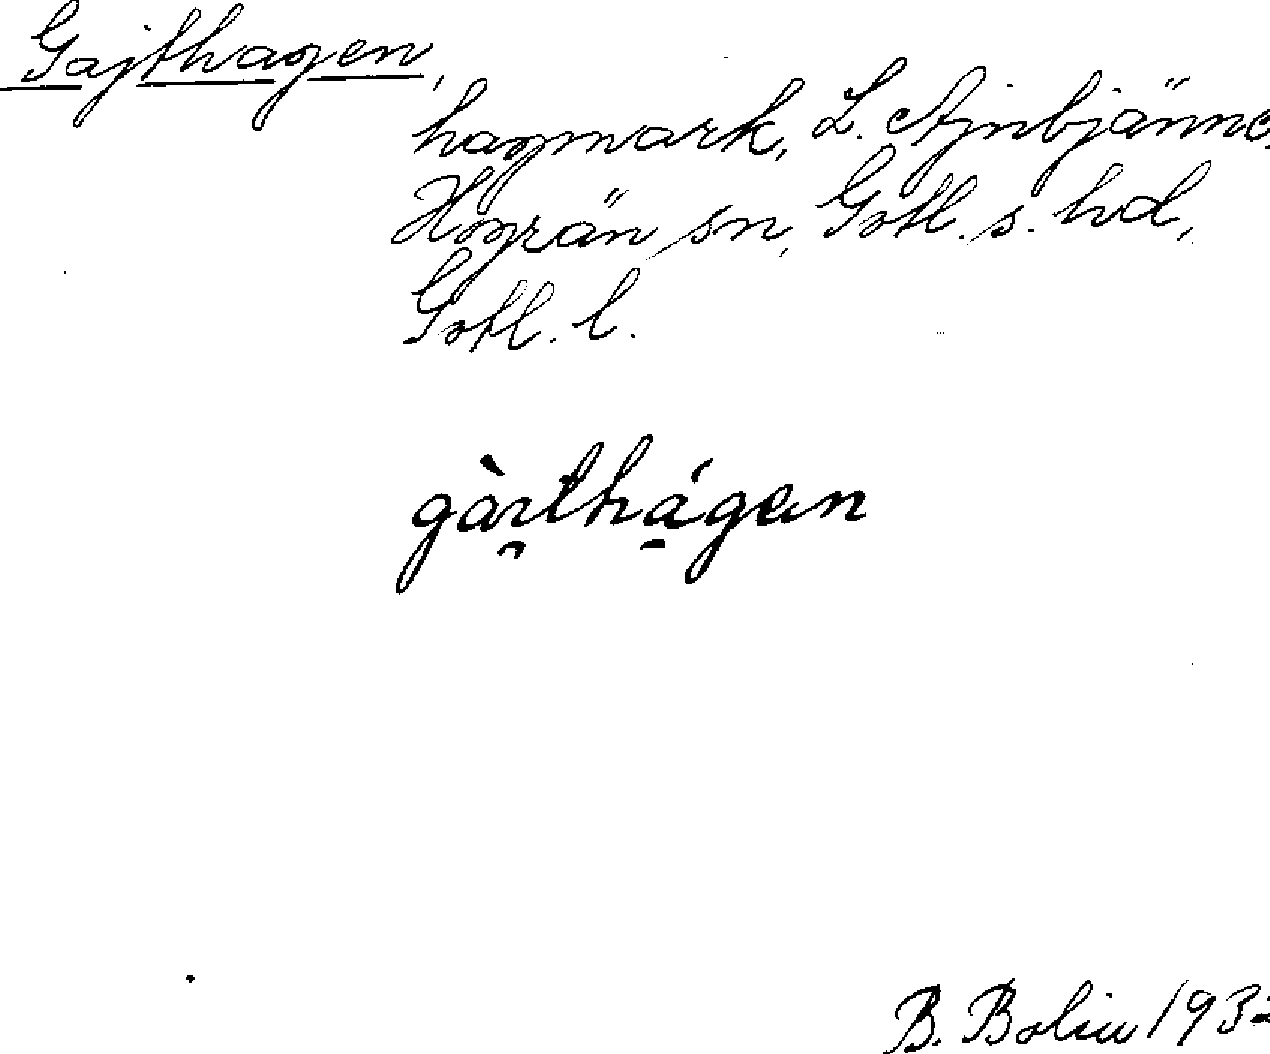 Gajthagen,
hagmark, L. Ajnbjänne,
Hogrän sn, Gotl. s. hd,
Gotl. l.
B. Bolin 193